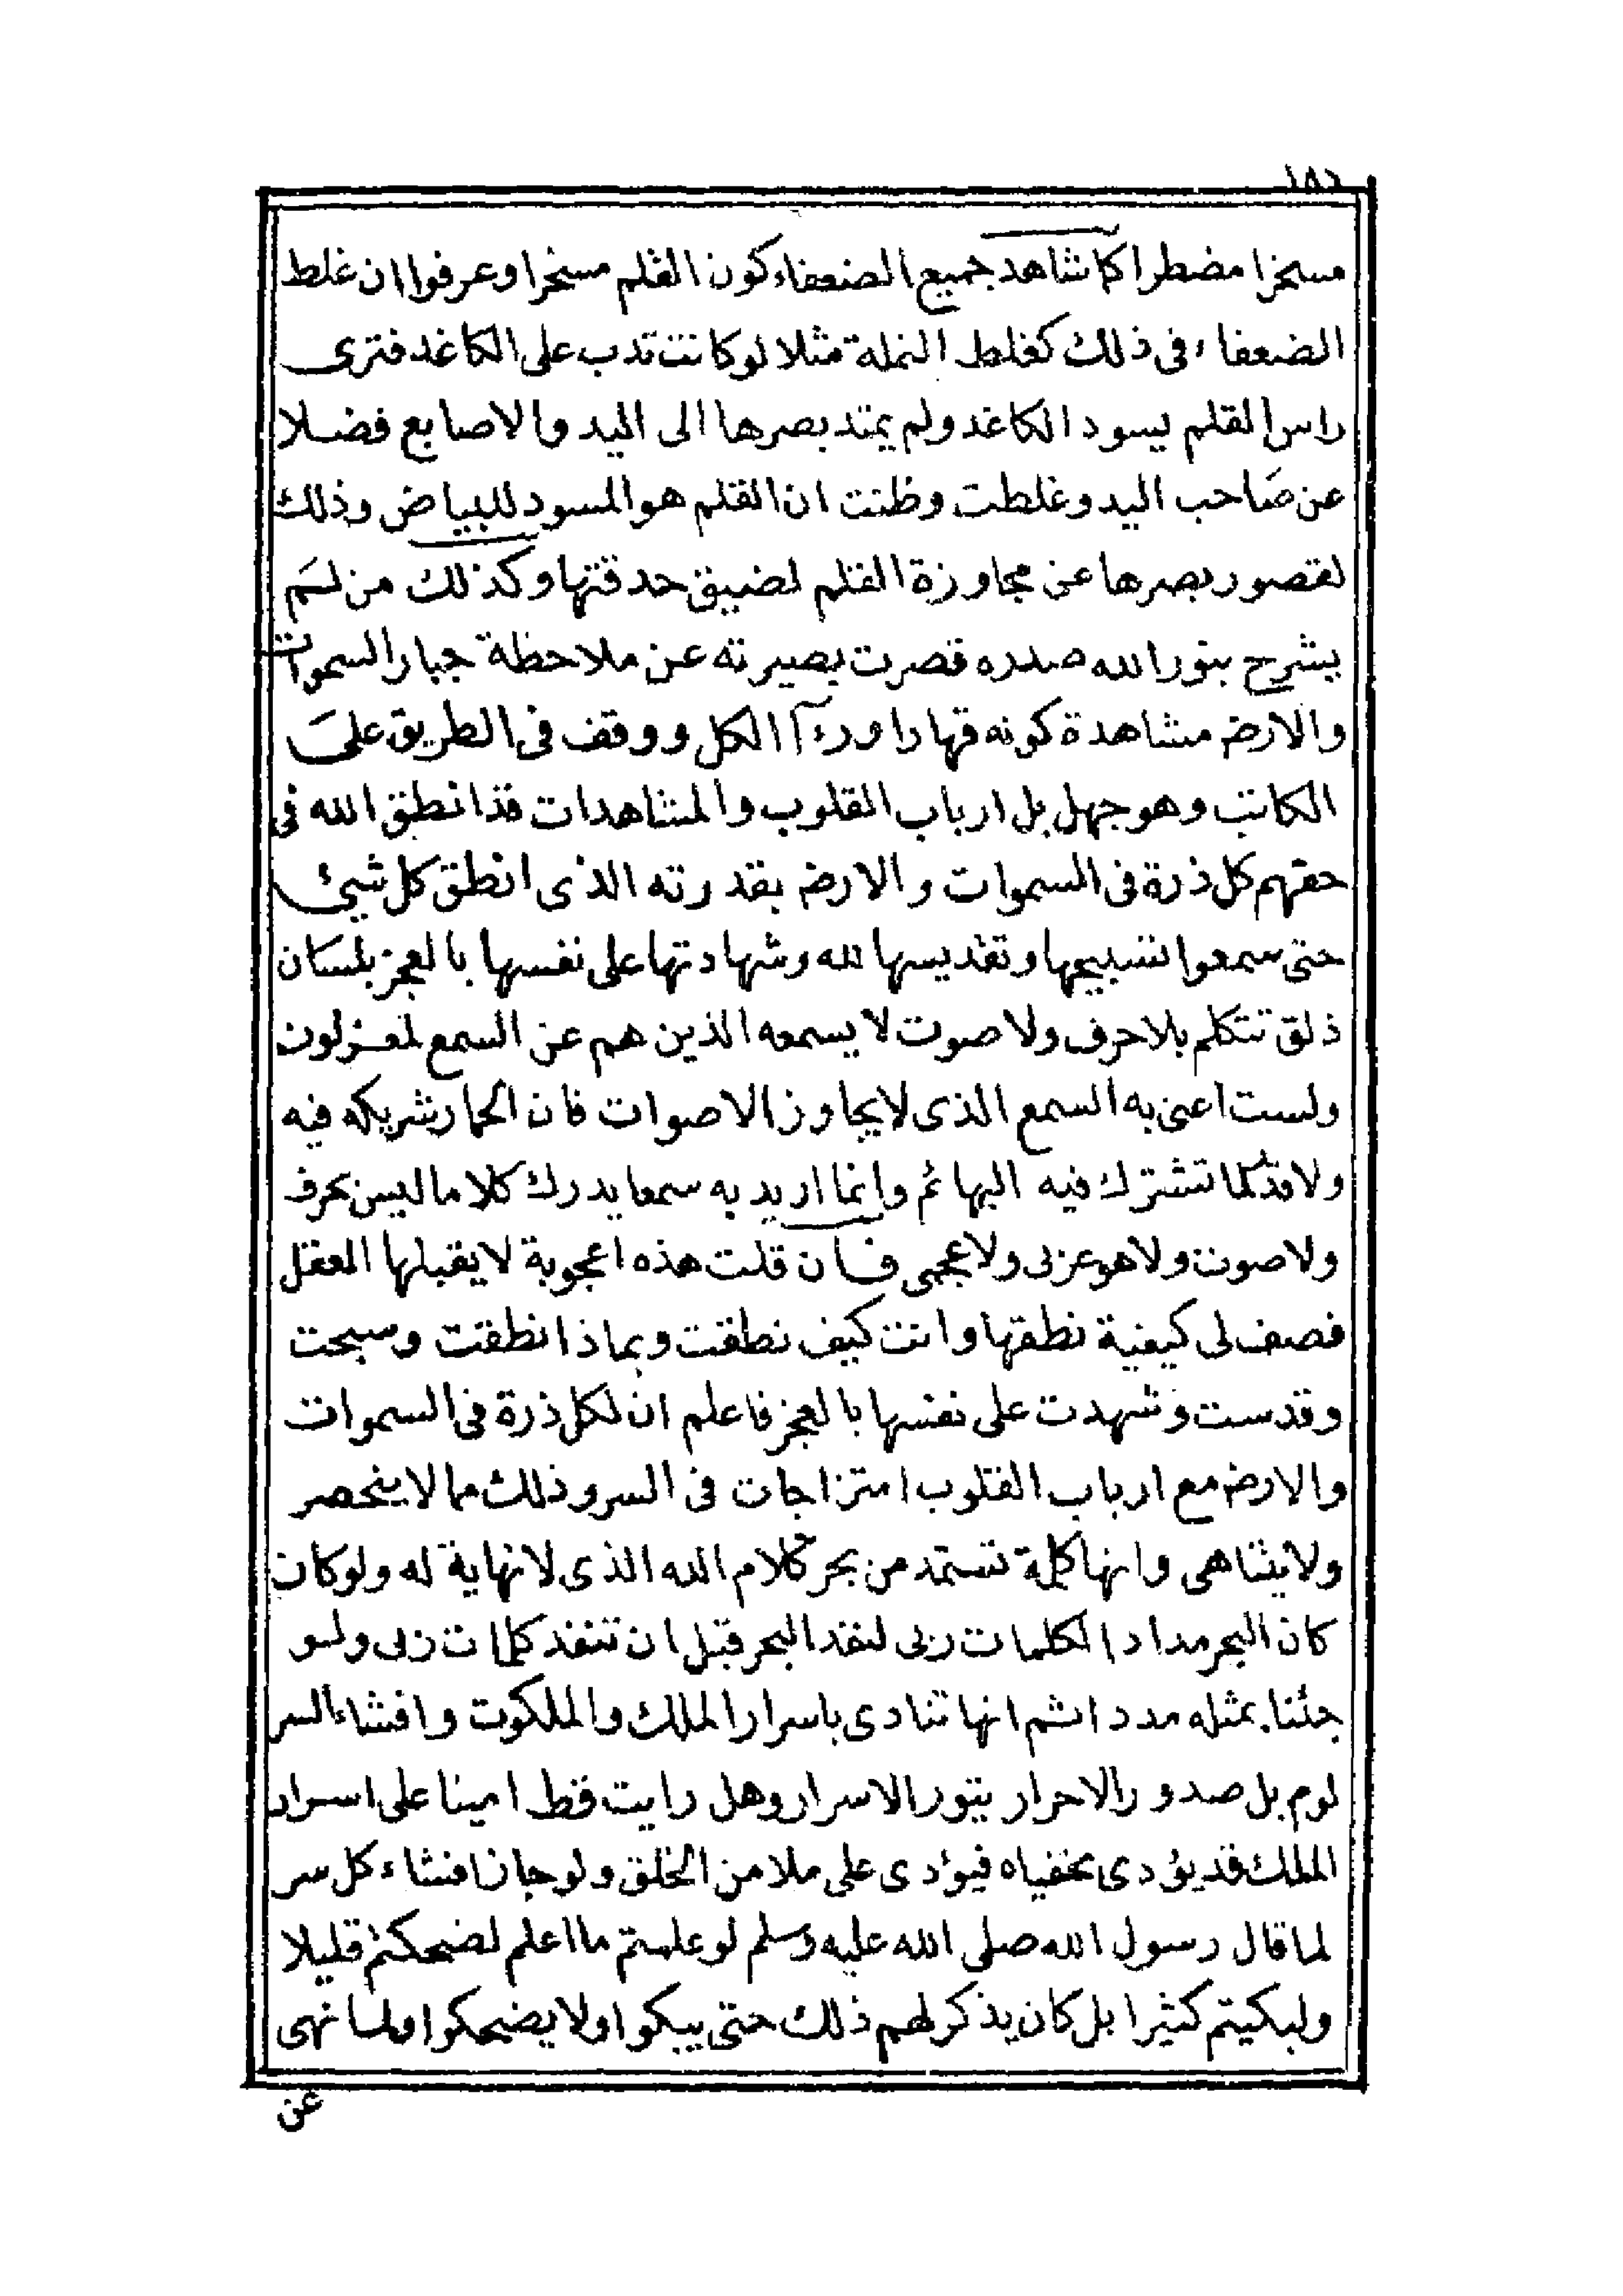 ١٨٦
مسخرا مضطرا كما شاهد جميع الضعفاء كون القلم مسخرا وعرفوا ان غلط
الضعفاء فى ذلك كغلط النملة مثلا لو كانت تدب على الكاغد فترى
راس القلم يسود الكاغد ولم يمتد بصرها الى اليد والاصابع فضلا
عن صاحب اليد وغلطت وظنت ان القلم هو المسود للبياض وذلك
لقصور بصرها عن مجاوزة القلم لضيق حدقتها وكذلك من لم
يشرح بنور الله صدره قصرت بصيرته عن ملاحظة جبار السموات
والارض مشاهدة كونه قهارا وراء الكل ووقف فى الطريق على
الكاتب وهو جهل بل ارباب القلوب والمشاهدات قد انطق الله فى
حقهم كل ذرة فى السموات والارض بقدرته الذى انطق كل شيئ
حتى سمعوا تسبيحها وتقديسها لله وشهادتها على نفسها بالعجز بلسان
ذلق تتكلم بلا حرف ولا صوت لا يسمعه الذين هم عن السمع لمعزولون
ولست اعنى به السمع الذى لا يجاوز الاصوات فان الحمار شريكه فيه
ولا قدر لما تشترك فيه البهائم وانما اريد به سمعا يدرك كلاما ليس بحرف
ولا صوت ولا هو عربى ولا عجمى فان قلت هذه اعجوبة لا يقبلها العقل
فصف لى كيفية نطقها وانت كيف نطقت وبماذا نطقت وسبحت
وقدست وشهدت على نفسها بالعجز فاعلم ان لكل ذرة فى السموات
والارض مع ارباب القلوب امتزاجات فى السر وذلك مما لا ينحصر
ولا يتناهى وانها كلمة تستمد من بحر كلام الله الذى لا نهاية له ولو كان
كان البحر مدادا لكلمات ربى لنفد البحر قبل ان تنفد كلمات ربى ولو
جئنا بمثله مددا ثم انها تنادى باسرار الملك والملكوت وافشاء السر
لوم بل صدور الاحرار بتور الاسرار وهل رايت قط امينا على اسرار
الملك قد يؤدى بخفياه فيؤدى على ملا من الخلق ولو جاز افشاء كل سر
لما قال رسول الله صلى الله عليه وسلم لو علمتم ما اعلم لضحكتم قليلا
ولبكيتم كثيرا بل كان يذكر لهم ذلك حتى يبكوا ولا يضحكوا ولما نهى
عن